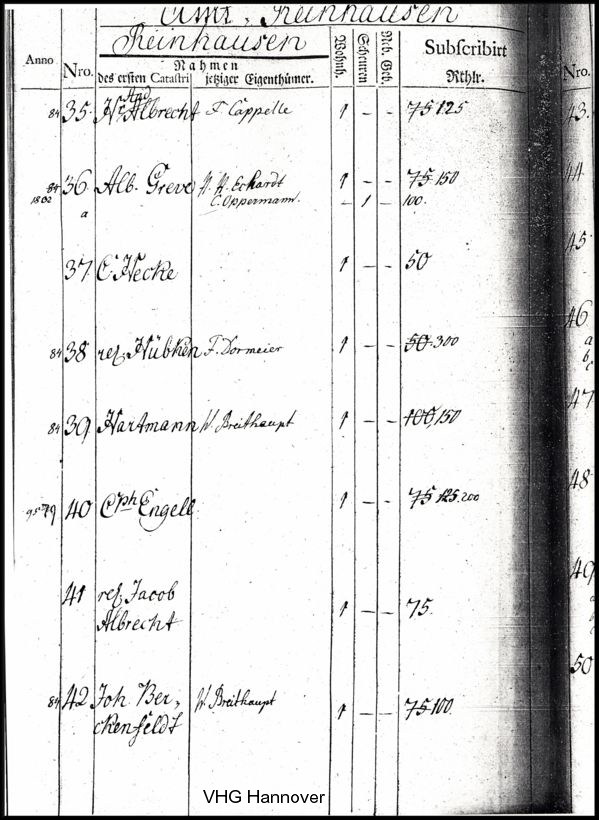 Amt, Reinhausen
Reinhausen
Anno Nro. Nahmen Wohnh. Scheuren Neb. Geb. Subscribirt Nro.
des ersten Catastri jetziger Eigenthümer. Rthlr.
And
84 35 Albrecht F. Cappelle 1 – – 75 125 43.
84 36 Alb. Greve Eckhardt 1 – – 75 150 44
1802 a C. Oppermann. – 1 – 100.
37 C. Hecke 1 – – 50 45
84 38 rel. Hübken F. Dormeier 1 – – 50. 300 46
a
b
c
84 39 Hartmann W. Breithaupt 1 – – 100, 150 47
79 40 Cph Engell 1 – – 75 125. 200 48
41 rel. Jacob 49
Albrecht 1 – – 75.
50
84 42 Joh Ber„ W. Breithaupt 1 – – 75 100.
ckenfeldt
VHG Hannover